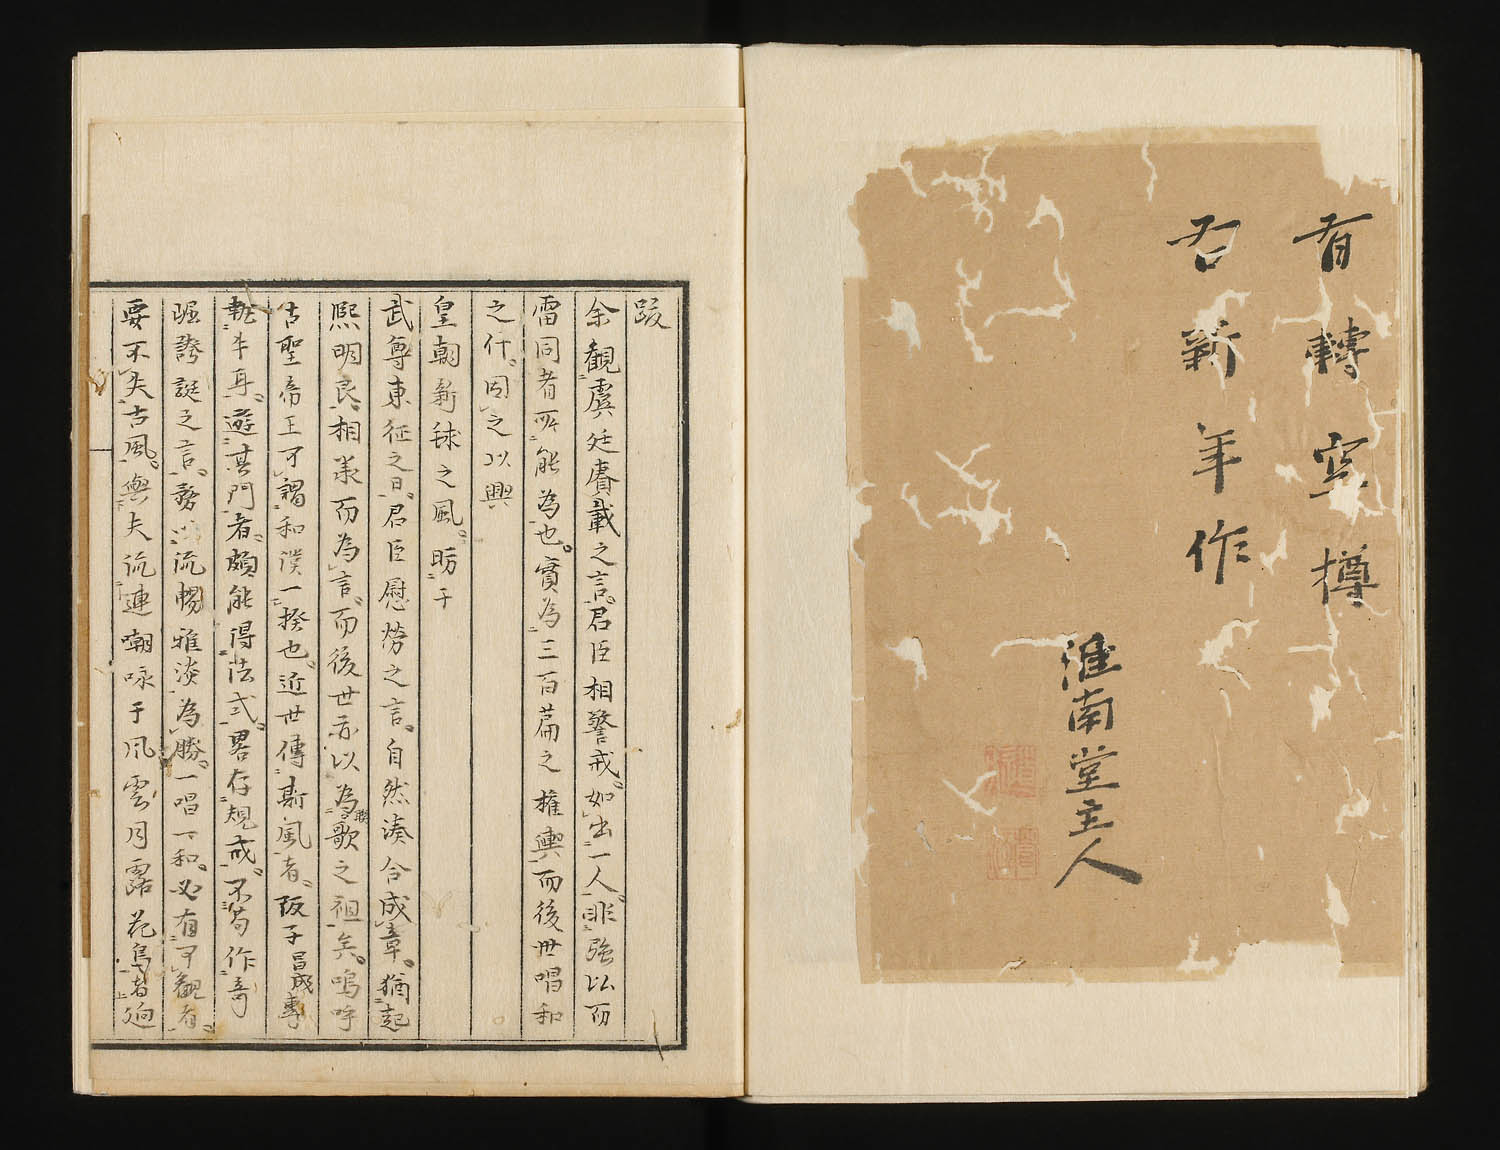 有轉空樽
右新年作
淮南堂主人
跋
余觀虞廷賡載之言君臣相警戒如出一人非強以而
雷同者所能為也實為三百篇之権輿而後世唱和
之什因之以興
皇朝新
之風昉于
武尊東征之日君臣慰勞之言自然湊合成章猶起
熙明良相兼而為言而後世亦以為聯歌之祖矣嗚呼
古聖帝王可謂和漢一揆也近世傳斯風者阪子昌成專
執牛耳遊其門者頗能得法式畧存規戒不苟作奇
崛誇誕之言務以流暢雅淡為勝一唱一和必有可觀者
要不失古風與夫流連嘲咏于風雲月露花鳥者逈